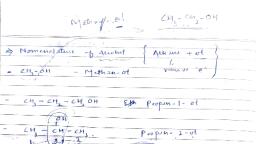 CH₃ - CH₂ - OH
⇒ Nomenclature of Alcohol { Alkane + ol
remove "e"
• CH₃-OH - Methan-ol
- CH₃ - CH₂ - CH₂ OH Propan-1-ol
OH
- CH₃ - CH - CH₃ Propan-2-ol